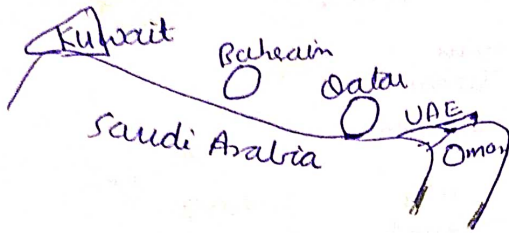 Kuwait
Bahrain
Qatar
UAE
Saudi Arabia
Oman